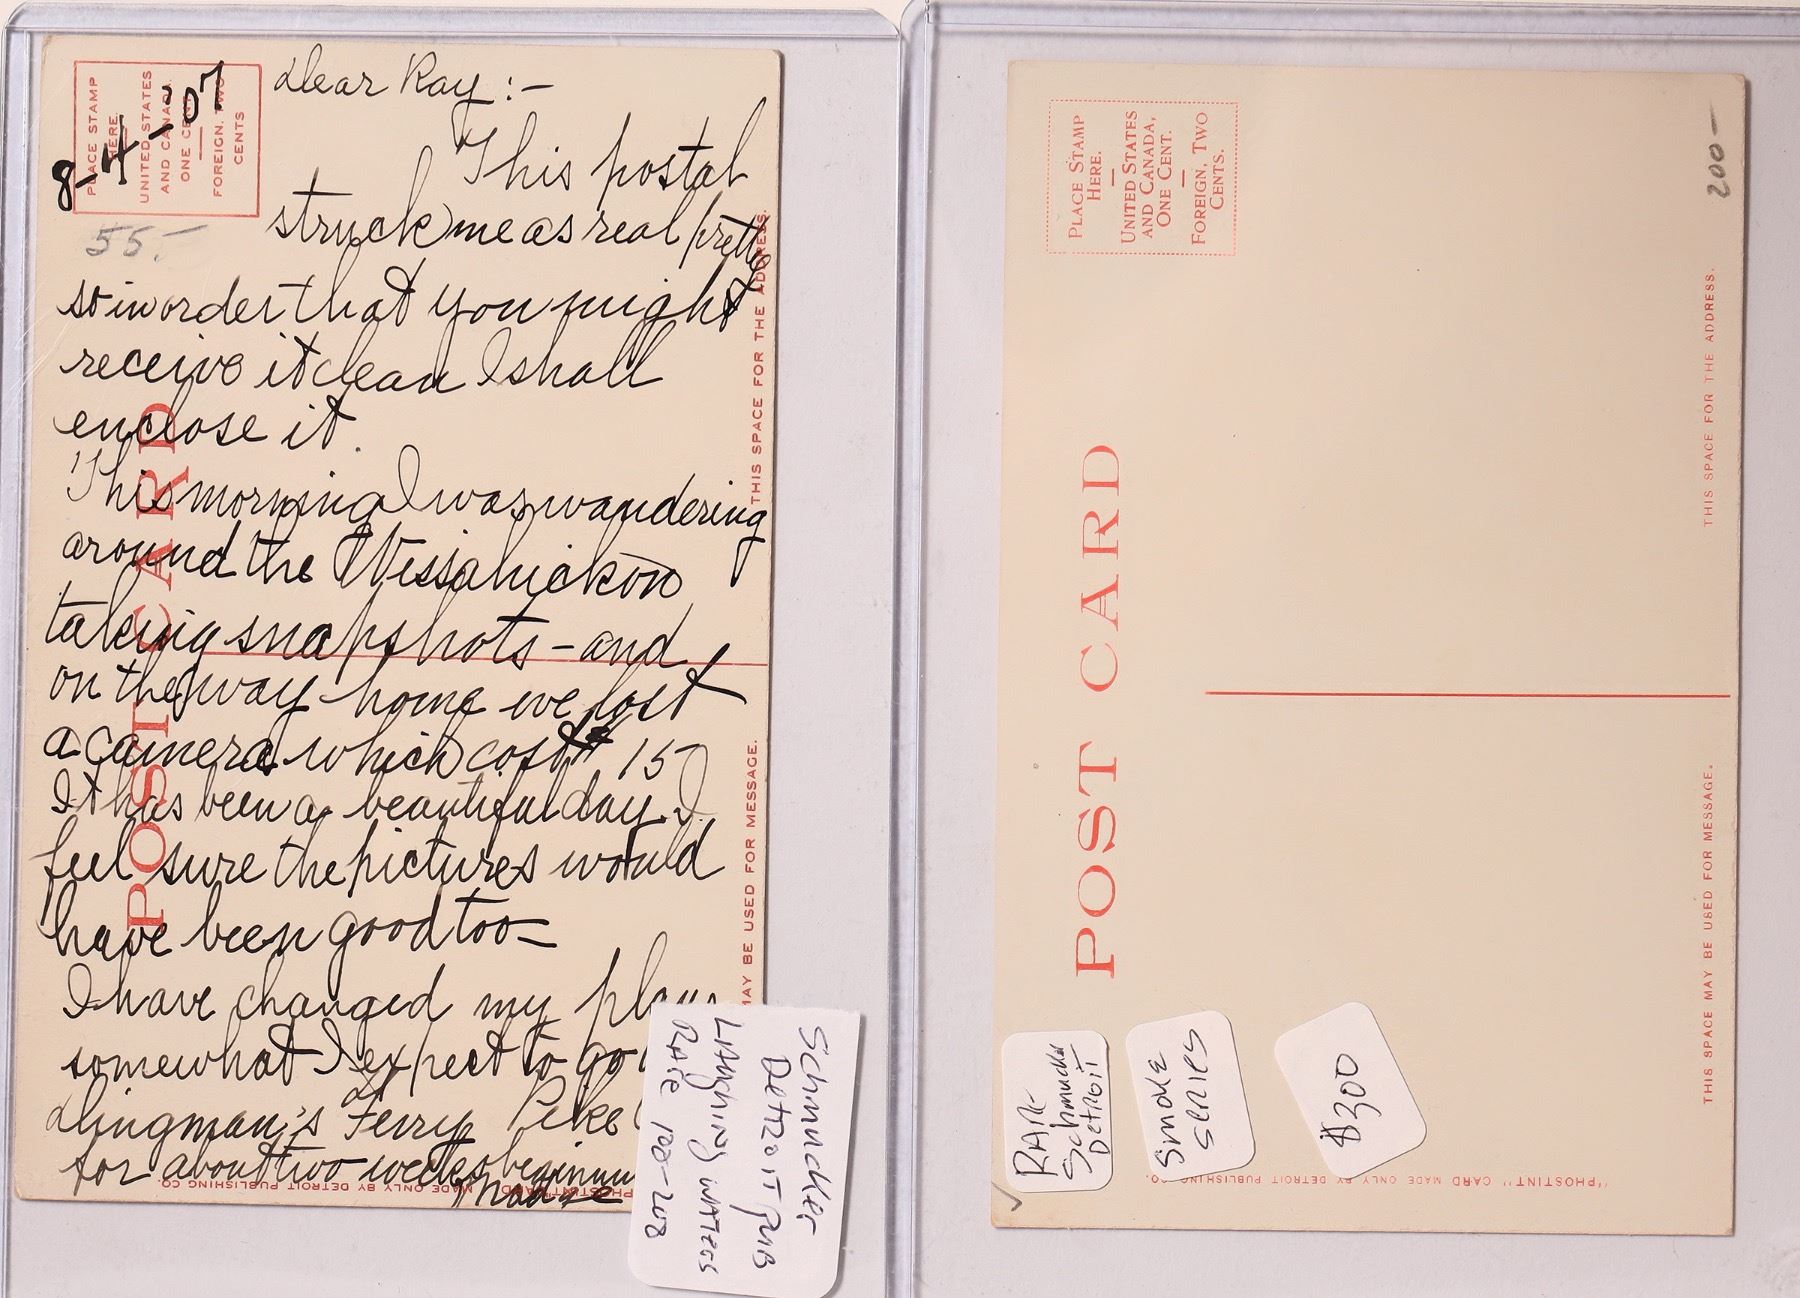 PLACE STAMP
HERE.
UNITED STATES
AND CANADA.
ONE CENT
FOREIGN, TWO
CENTS
8-4-07
55.-
Dear Ray:-
This postal
struck me as real pretty
so in order that you might
receive it clean I shall
enclose it.
This morning I was wandering
around the Wissahickon
taking snapshots - and
on the way home we lost
a camera which cost $15
It has been a beautiful day. I
feel sure the pictures would
have been good too-
I have changed my plans
somewhat I expect to go
Dingman's Ferry Pike
for about two weeks
POST CARD
THIS SPACE FOR THE ADDRESS.
MAY BE USED FOR MESSAGE.
"PHOSTINT" CARD MADE ONLY BY DETROIT PUBLISHING CO.
Schmucker
Detroit Pub
Laughing Waters
Rare 150-200
PLACE STAMP
HERE.
UNITED STATES
AND CANADA,
ONE CENT.
FOREIGN, TWO
CENTS.
200-
POST CARD
THIS SPACE FOR THE ADDRESS.
THIS SPACE MAY BE USED FOR MESSAGE.
"PHOSTINT" CARD MADE ONLY BY DETROIT PUBLISHING CO.
RARE
Schmucker
Detroit
Smoke
Series
$300